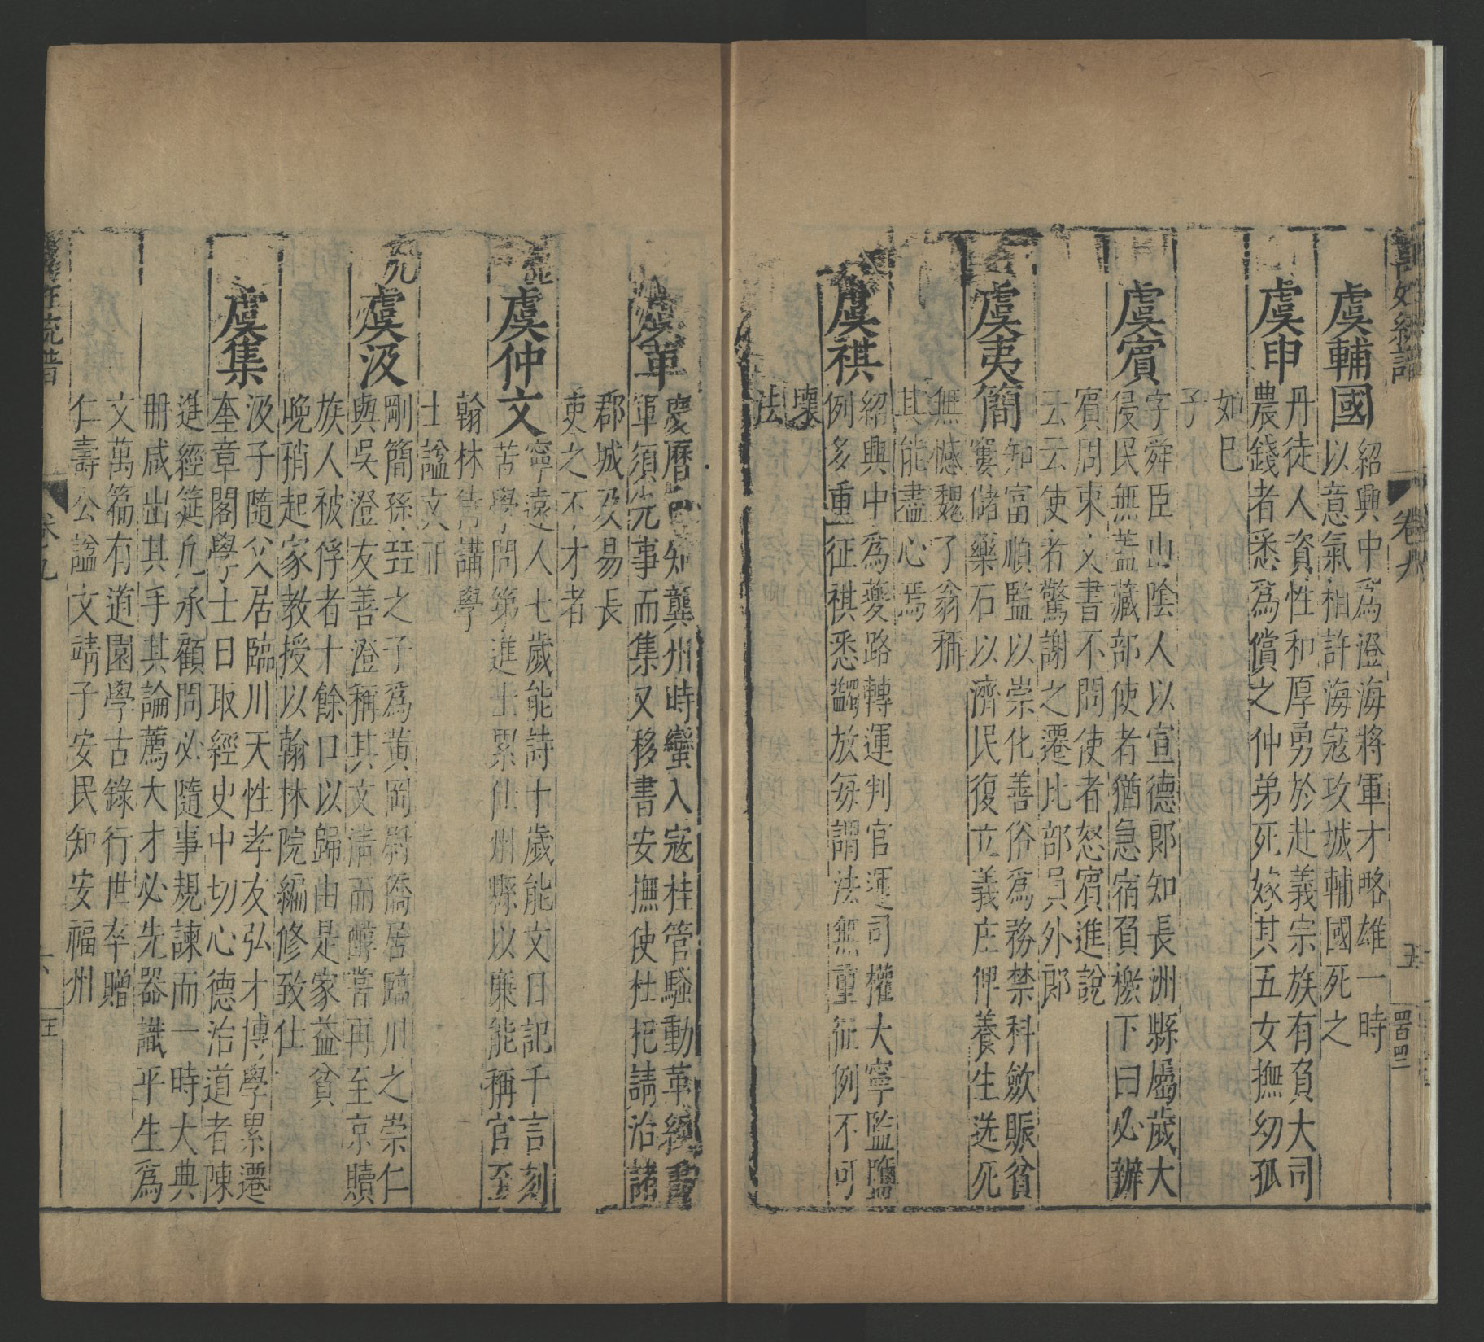 卷九
五
虞輔國
紹興中爲澄海將軍才略雄一時
以意氣相許海寇攻城輔國死之
虞申
丹徒人資性和厚勇於赴義宗族有負大司
農錢者悉爲償之仲弟死嫁其五女撫幼孤
如已
子
虞賓
字舜臣山陰人以宣德郎知長洲縣屬歲大
侵民無蓋藏部使者猶急宿負檄下曰必辦
賓周束文書不問使者怒賓進說
云云使者驚謝之遷比部員外郎
虞夷簡
知富順監以崇化善俗爲務禁科歛賑貧
窶儲藥石以濟民復立義庄俾養生送死
無憾魏了翁稱
其能盡心焉
虞祺
紹興中爲夔路轉運判官運司權大寧監鹽
例多重征祺悉蠲放每謂法無重征例不可
壞
法
虞革
慶曆知龔州時蠻入寇桂管騷動革經書
軍須先事而集又移書安撫使杜杞請治諸
郡城及易長
吏之不才者
虞仲文
寧遠人七歲能詩十歲能文日記千言刻
苦學問第進士累仕州縣以廉能稱官至
翰林侍講學
士諡文正
元
虞汲
剛簡孫珏之子爲黃岡尉僑居臨川之崇仁
與吳澄友善澄稱其文清而醇嘗再至京贖
族人被俘者十餘口以歸由是家益貧
晚稍起家教授以翰林院編修致仕
虞集
汲子隨父居臨川天性孝友弘才博學累遷
奎章閣學士日取經史中切心德治道者陳
進經筵凡承顧問必隨事規諫而一時大典
冊咸出其手其論薦大才必先器識平生爲
文萬篇有道園學古錄行世卒贈
仁壽公諡文靖子安民知安福州